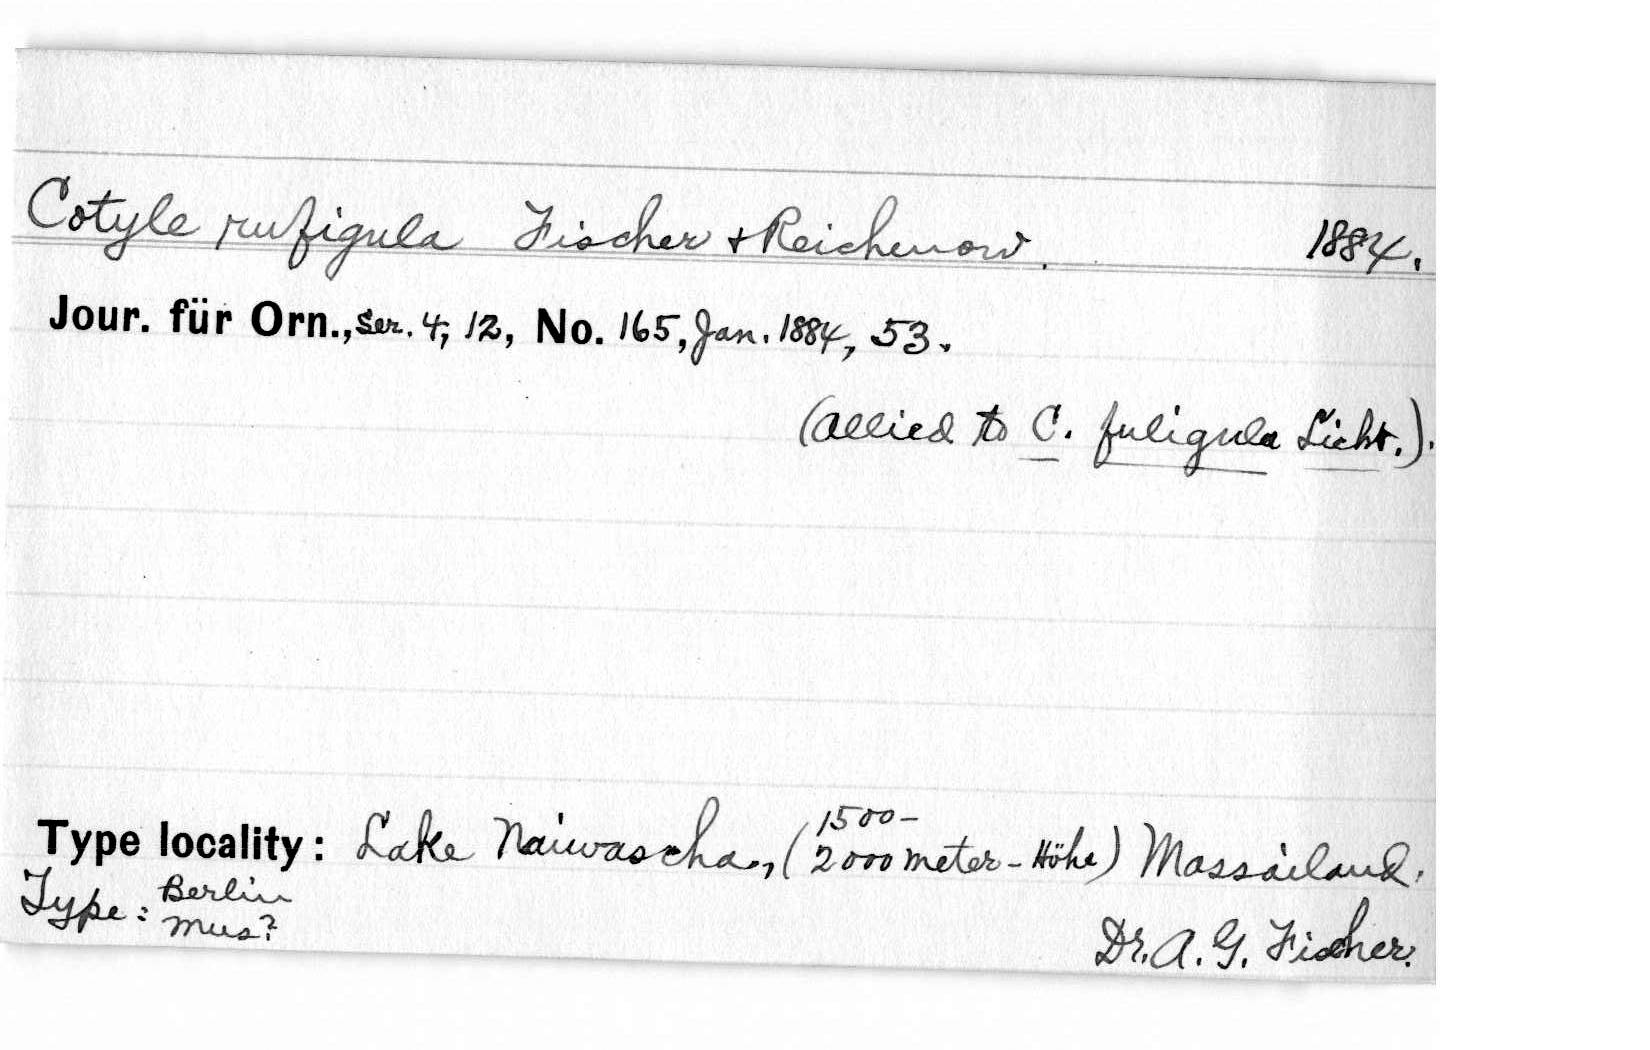 Cotyle rufigula Fischer & Reichenow. 1884.
Jour. für Orn., Ser. 4, 12, No. 165, Jan. 1884, 53.
(Allied to C. fuligula Licht.).
Type locality: Lake Naiwascha, (1500-
2000 meter-Höhe) Massailand.
Type: Berlin
Mus?
Dr. A. G. Fischer.